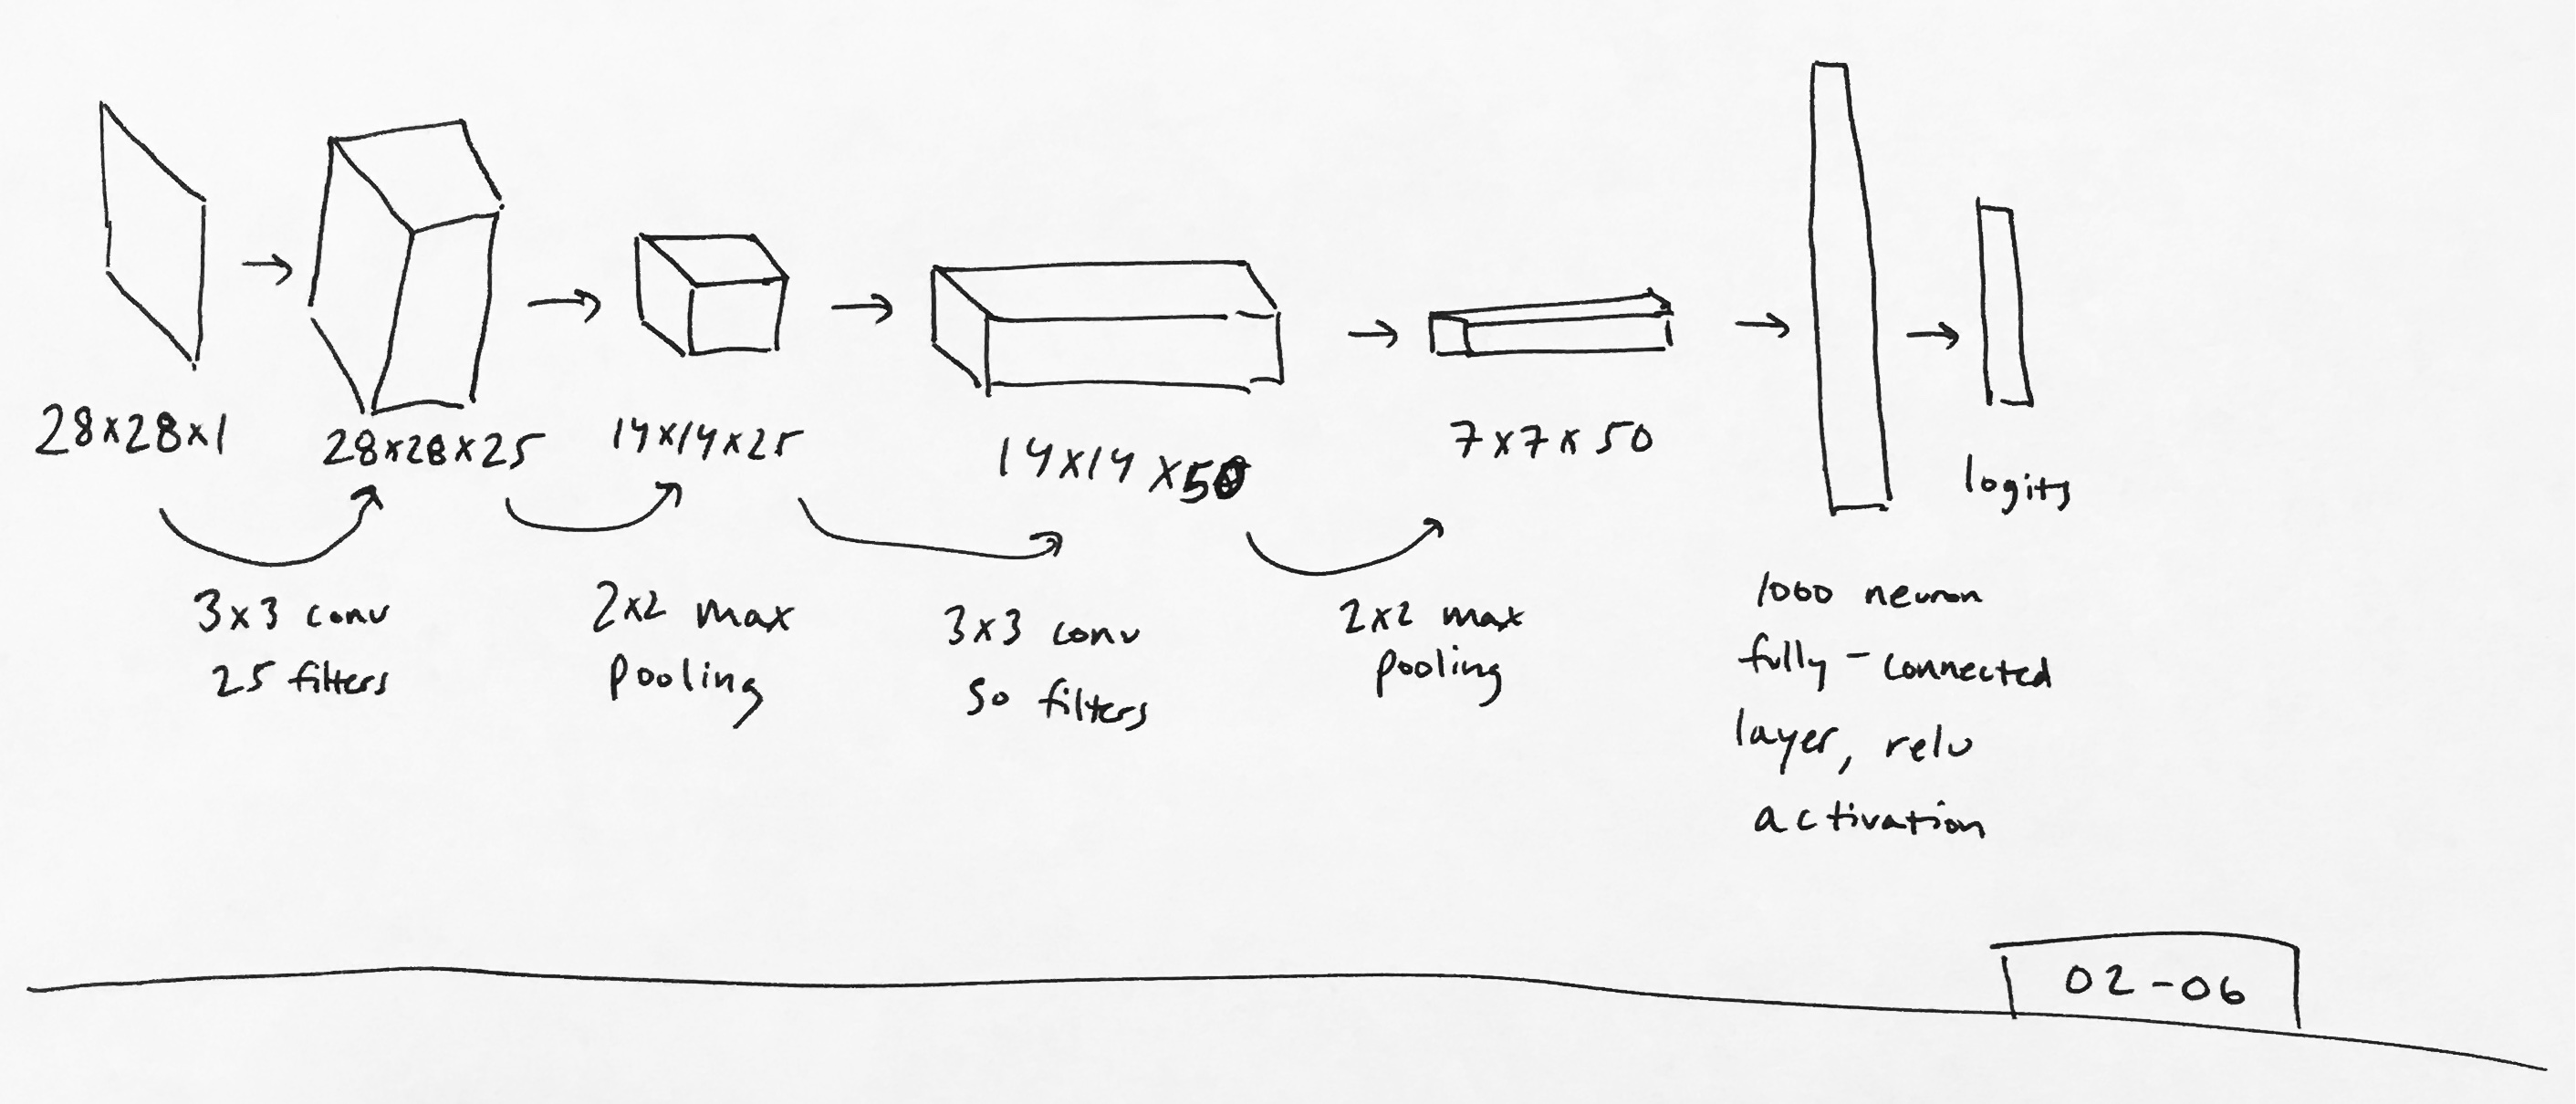 28x28x1
28x28x25
14x14x25
14x14x50
7x7x50
logits
3x3 conv
25 filters
2x2 max
pooling
3x3 conv
50 filters
2x2 max
pooling
1000 neuron
fully-connected
layer, relu
activation
02-06